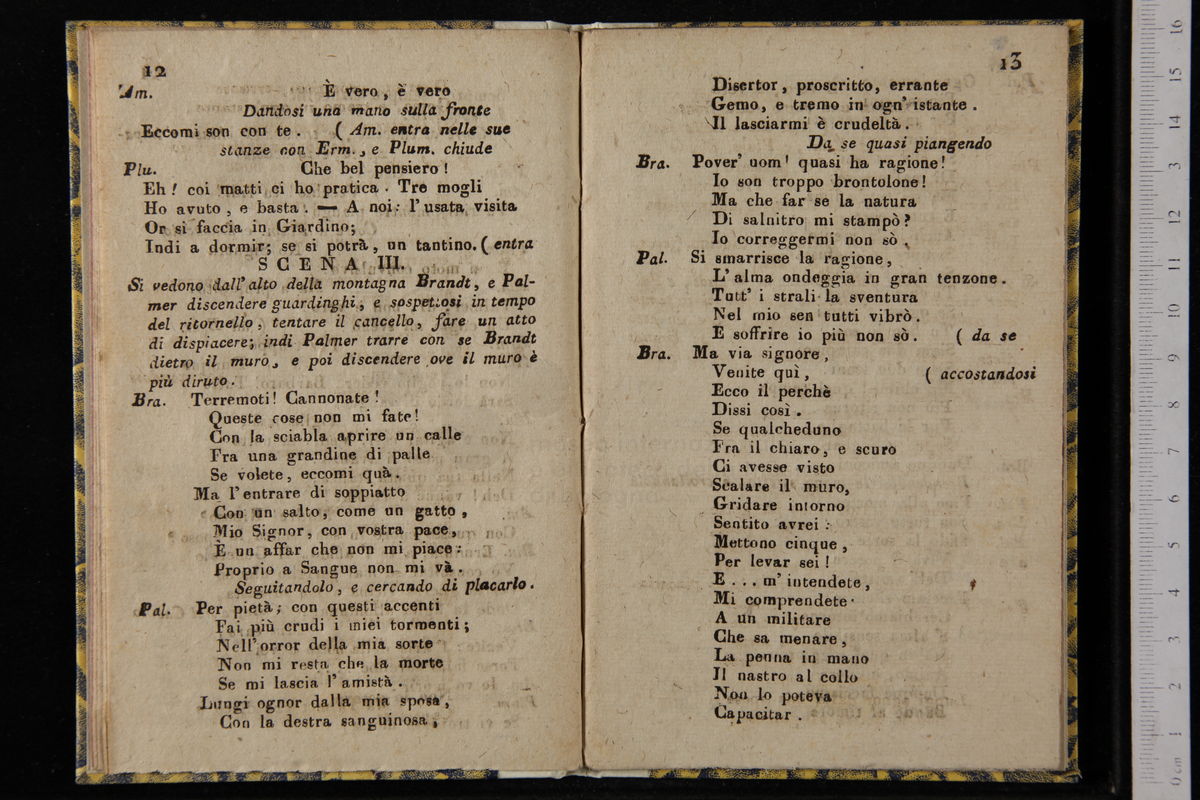 12
Am. È vero, è vero
Dandosi una mano sulla fronte
Eccomi son con te. ( Am. entra nelle sue
stanze con Erm., e Plum. chiude
Plu. Che bel pensiero!
Eh! coi matti ci ho pratica. Tre mogli
Ho avuto, e basta. — A noi: l'usata visita
Or si faccia in Giardino;
Indi a dormir; se si potrà, un tantino. ( entra
SCENA III.
Si vedono dall'alto della montagna Brandt, e Pal-
mer discendere guardinghi, e sospettosi in tempo
del ritornello, tentare il cancello, fare un atto
di dispiacere; indi Palmer trarre con se Brandt
dietro il muro, e poi discendere ove il muro è
più diruto.
Bra. Terremoti! Cannonate!
Queste cose non mi fate!
Con la sciabla aprire un calle
Fra una grandine di palle
Se volete, eccomi quà.
Ma l'entrare di soppiatto
Con un salto, come un gatto,
Mio Signor, con vostra pace,
È un affar che non mi piace:
Proprio a Sangue non mi và.
Seguitandolo, e cercando di placarlo.
Pal. Per pietà; con questi accenti
Fai più crudi i miei tormenti;
Nell'orror della mia sorte
Non mi resta che la morte
Se mi lascia l'amistà.
Lungi ognor dalla mia sposa,
Con la destra sanguinosa,
13
Disertor, proscritto, errante
Gemo, e tremo in ogn' istante.
Il lasciarmi è crudeltà.
Da se quasi piangendo
Bra. Pover' uom! quasi ha ragione!
Io son troppo brontolone!
Ma che far se la natura
Di salnitro mi stampò?
Io correggermi non sò.
Pal. Si smarrisce la ragione,
L'alma ondeggia in gran tenzone.
Tutt' i strali la sventura
Nel mio sen tutti vibrò.
E soffrire io più non sò. ( da se
Bra. Ma via signore,
Venite quì, ( accostandosi
Ecco il perchè
Dissi così.
Se qualcheduno
Fra il chiaro, e scuro
Ci avesse visto
Scalare il muro,
Gridare intorno
Sentito avrei:
Mettono cinque,
Per levar sei!
E... m'intendete,
Mi comprendete.
A un militare
Che sa menare,
La penna in mano
Il nastro al collo
Non lo poteva
Capacitar.
0 cm 1 2 3 4 5 6 7 8 9 10 11 12 13 14 15 16